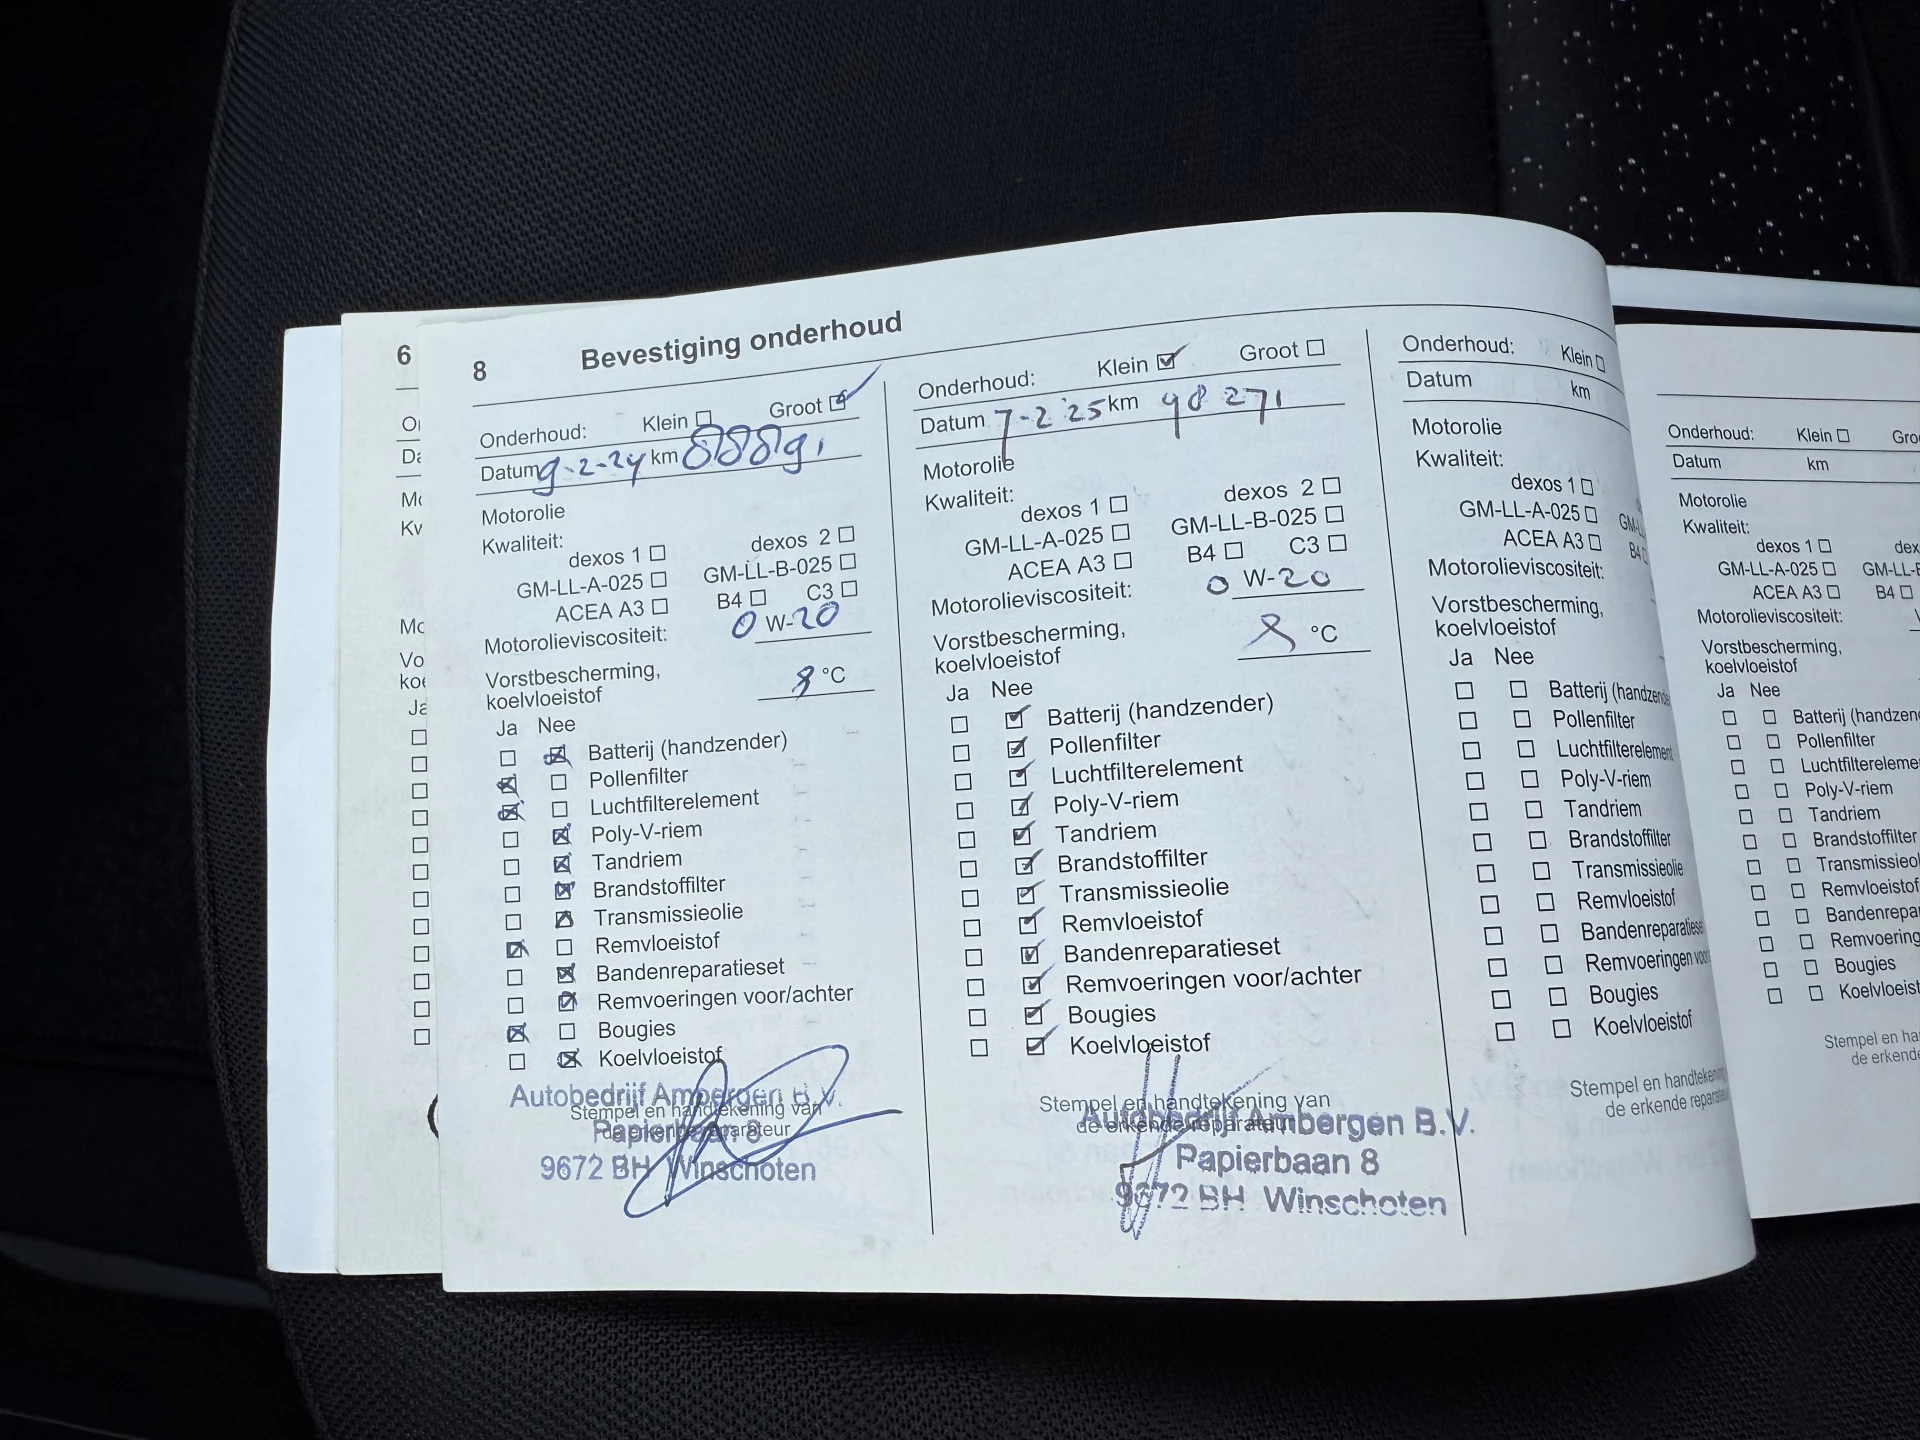 6
8
Bevestiging onderhoud
Onderhoud: Klein Groot
Datum 9-2-24 km 88891
Motorolie
Kwaliteit:
dexos 1 dexos 2
GM-LL-A-025 GM-LL-B-025
ACEA A3 B4 C3
Motorolieviscositeit: 0 W-20
Vorstbescherming,
koelvloeistof °C
Ja Nee
Batterij (handzender)
Pollenfilter
Luchtfilterelement
Poly-V-riem
Tandriem
Brandstoffilter
Transmissieolie
Remvloeistof
Bandenreparatieset
Remvoeringen voor/achter
Bougies
Koelvloeistof
Stempel en handtekening van
de erkende reparateur
Autobedrijf Ambergen B.V.
Papierbaan 8
9672 BH Winschoten
Onderhoud: Klein Groot
Datum 7-2 '25 km 98 271
Motorolie
Kwaliteit:
dexos 1 dexos 2
GM-LL-A-025 GM-LL-B-025
ACEA A3 B4 C3
Motorolieviscositeit: 0 W-20
Vorstbescherming,
koelvloeistof °C
Ja Nee
Batterij (handzender)
Pollenfilter
Luchtfilterelement
Poly-V-riem
Tandriem
Brandstoffilter
Transmissieolie
Remvloeistof
Bandenreparatieset
Remvoeringen voor/achter
Bougies
Koelvloeistof
Stempel en handtekening van
de erkende reparateur
Autobedrijf Ambergen B.V.
Papierbaan 8
9672 BH Winschoten
Onderhoud: Klein
Datum km
Motorolie
Kwaliteit:
dexos 1
GM-LL-A-025 GM-LL
ACEA A3 B4
Motorolieviscositeit:
Vorstbescherming,
koelvloeistof
Ja Nee
Batterij (handzende
Pollenfilter
Luchtfilterelement
Poly-V-riem
Tandriem
Brandstoffilter
Transmissieolie
Remvloeistof
Bandenreparatiese
Remvoeringen voor
Bougies
Koelvloeistof
Stempel en handtekening
de erkende reparateur
Onderhoud: Klein Groo
Datum km
Motorolie
Kwaliteit:
dexos 1 dex
GM-LL-A-025 GM-LL-B
ACEA A3 B4
Motorolieviscositeit:
Vorstbescherming,
koelvloeistof
Ja Nee
Batterij (handzen
Pollenfilter
Luchtfiltereleme
Poly-V-riem
Tandriem
Brandstoffilter
Transmissieol
Remvloeistof
Bandenrepar
Remvoering
Bougies
Koelvloeist
Stempel en ha
de erkende